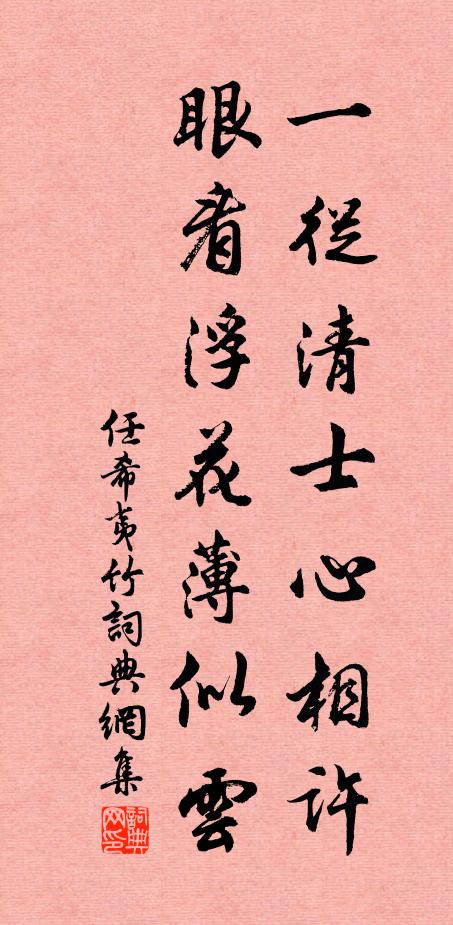 一從清士心相許
眼看浮花薄似雲
任希夷竹詞典網集
詞典网印